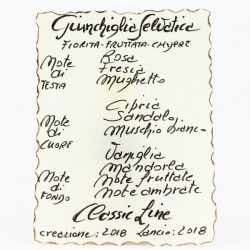 Giunchiglia Selvatica
FIORITA-FRUTTATA-CHYPRE
Note di TESTA
Rosa
Fresia
Mughetto
Note di CUORE
Cipria
Sandalo
Muschio bianco
Note di FONDO
Vaniglia
Mandorla
Note fruttate
Note ambrate
Classic Line
creazione: 2018 Lancio: 2018